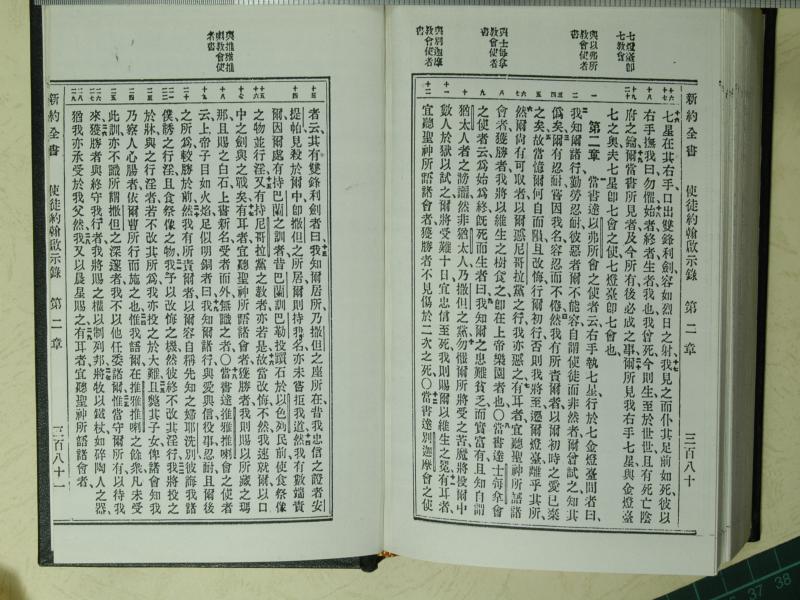 新約全書 使徒約翰啟示錄 第二章 三百八十
七燈臺即
七教會
與以弗所
教會使者
書
與士每拿
教會使者
書
與別迦摩
教會使者
書
七星在其右手口出雙鋒利劍容如烈日之射我見之而仆其足前如死彼以
右手撫我曰勿懼始者終者生者我也我曾死今則生至於世世且有死亡陰
府之鑰爾當書所見者及今所有後必成之事爾所見我右手七星與金燈臺
七之奧夫七星即七會之使七燈臺即七會也
第二章 當書達以弗所會之使者云右手執七星行於七金燈臺間者曰
我知爾諸行勤勞忍耐彼惡者爾不能容自謂使徒而非然者爾曾試之知其
僞矣爾有忍耐嘗因我名容忍而不倦然我有所責爾者以爾初時之愛已棄
之矣故當憶爾何自而隕且改悔行爾初行否則我將至遷爾燈臺離乎其所
然爾尚有可取者以爾惡尼哥拉黨之行我亦惡之有耳者宜聽聖神所語諸
會者獲勝者我將以維生之樹食之即在上帝樂園者也〇當書達士每拿會
之使者云為始為終旣死而生者曰我知爾之患難貧乏而實富有且知自謂
猶太人者之謗讟然非猶太人乃撒但之黨勿懼爾所將受之苦魔將投爾中
數人於獄以試之爾將受難十日宜忠信至死我則賜爾以維生之冕有耳者
宜聽聖神所語諸會者獲勝者不見傷於二次之死〇當書達別迦摩會之使
新約全書 使徒約翰啟示錄 第二章 三百八十一
與推雅推
喇教會使
者書
者云其有雙鋒利劍者曰我知爾居所乃撒但之座所在昔我忠信之證者安
提帕見殺於爾中即撒但之所居爾則持我名亦未嘗拒我道然我有數端責
爾因爾處有持巴蘭之訓者昔巴蘭訓巴勒投躓石於以色列民前使食祭像
之物並行淫又有持尼哥拉黨之教者亦若是故當改悔不然我速就爾以口
中之劍與之戰矣有耳者宜聽聖神所語諸會者獲勝者我則賜以所藏之瑪
那且賜之白石上書新名受者而外無識之者〇當書達推雅推喇會之使者
云上帝子目如火焰足似明銅者曰我知爾諸行與愛與信役事忍耐且爾後
之所為較勝於前然我有所責爾者以爾容自稱先知之婦耶洗別彼誨我諸
僕誘之行淫且食祭像之物我予以改悔之機然彼終不改其淫行我將投之
於牀與之行淫者若不改其所為我亦投之於大難且斃其子女俾諸會知我
乃察人心腸者依爾曹所行而施之也惟我語爾在推雅推喇之餘衆凡未受
此訓亦不識所謂撒但之深邃者我不以他任委諸爾惟當守爾所有以待我
來獲勝者與終守我行者我將賜之權以制列邦將牧以鐵杖如碎陶人之器
猶我亦承受於我父然我又以晨星賜之有耳者宜聽聖神所語諸會者